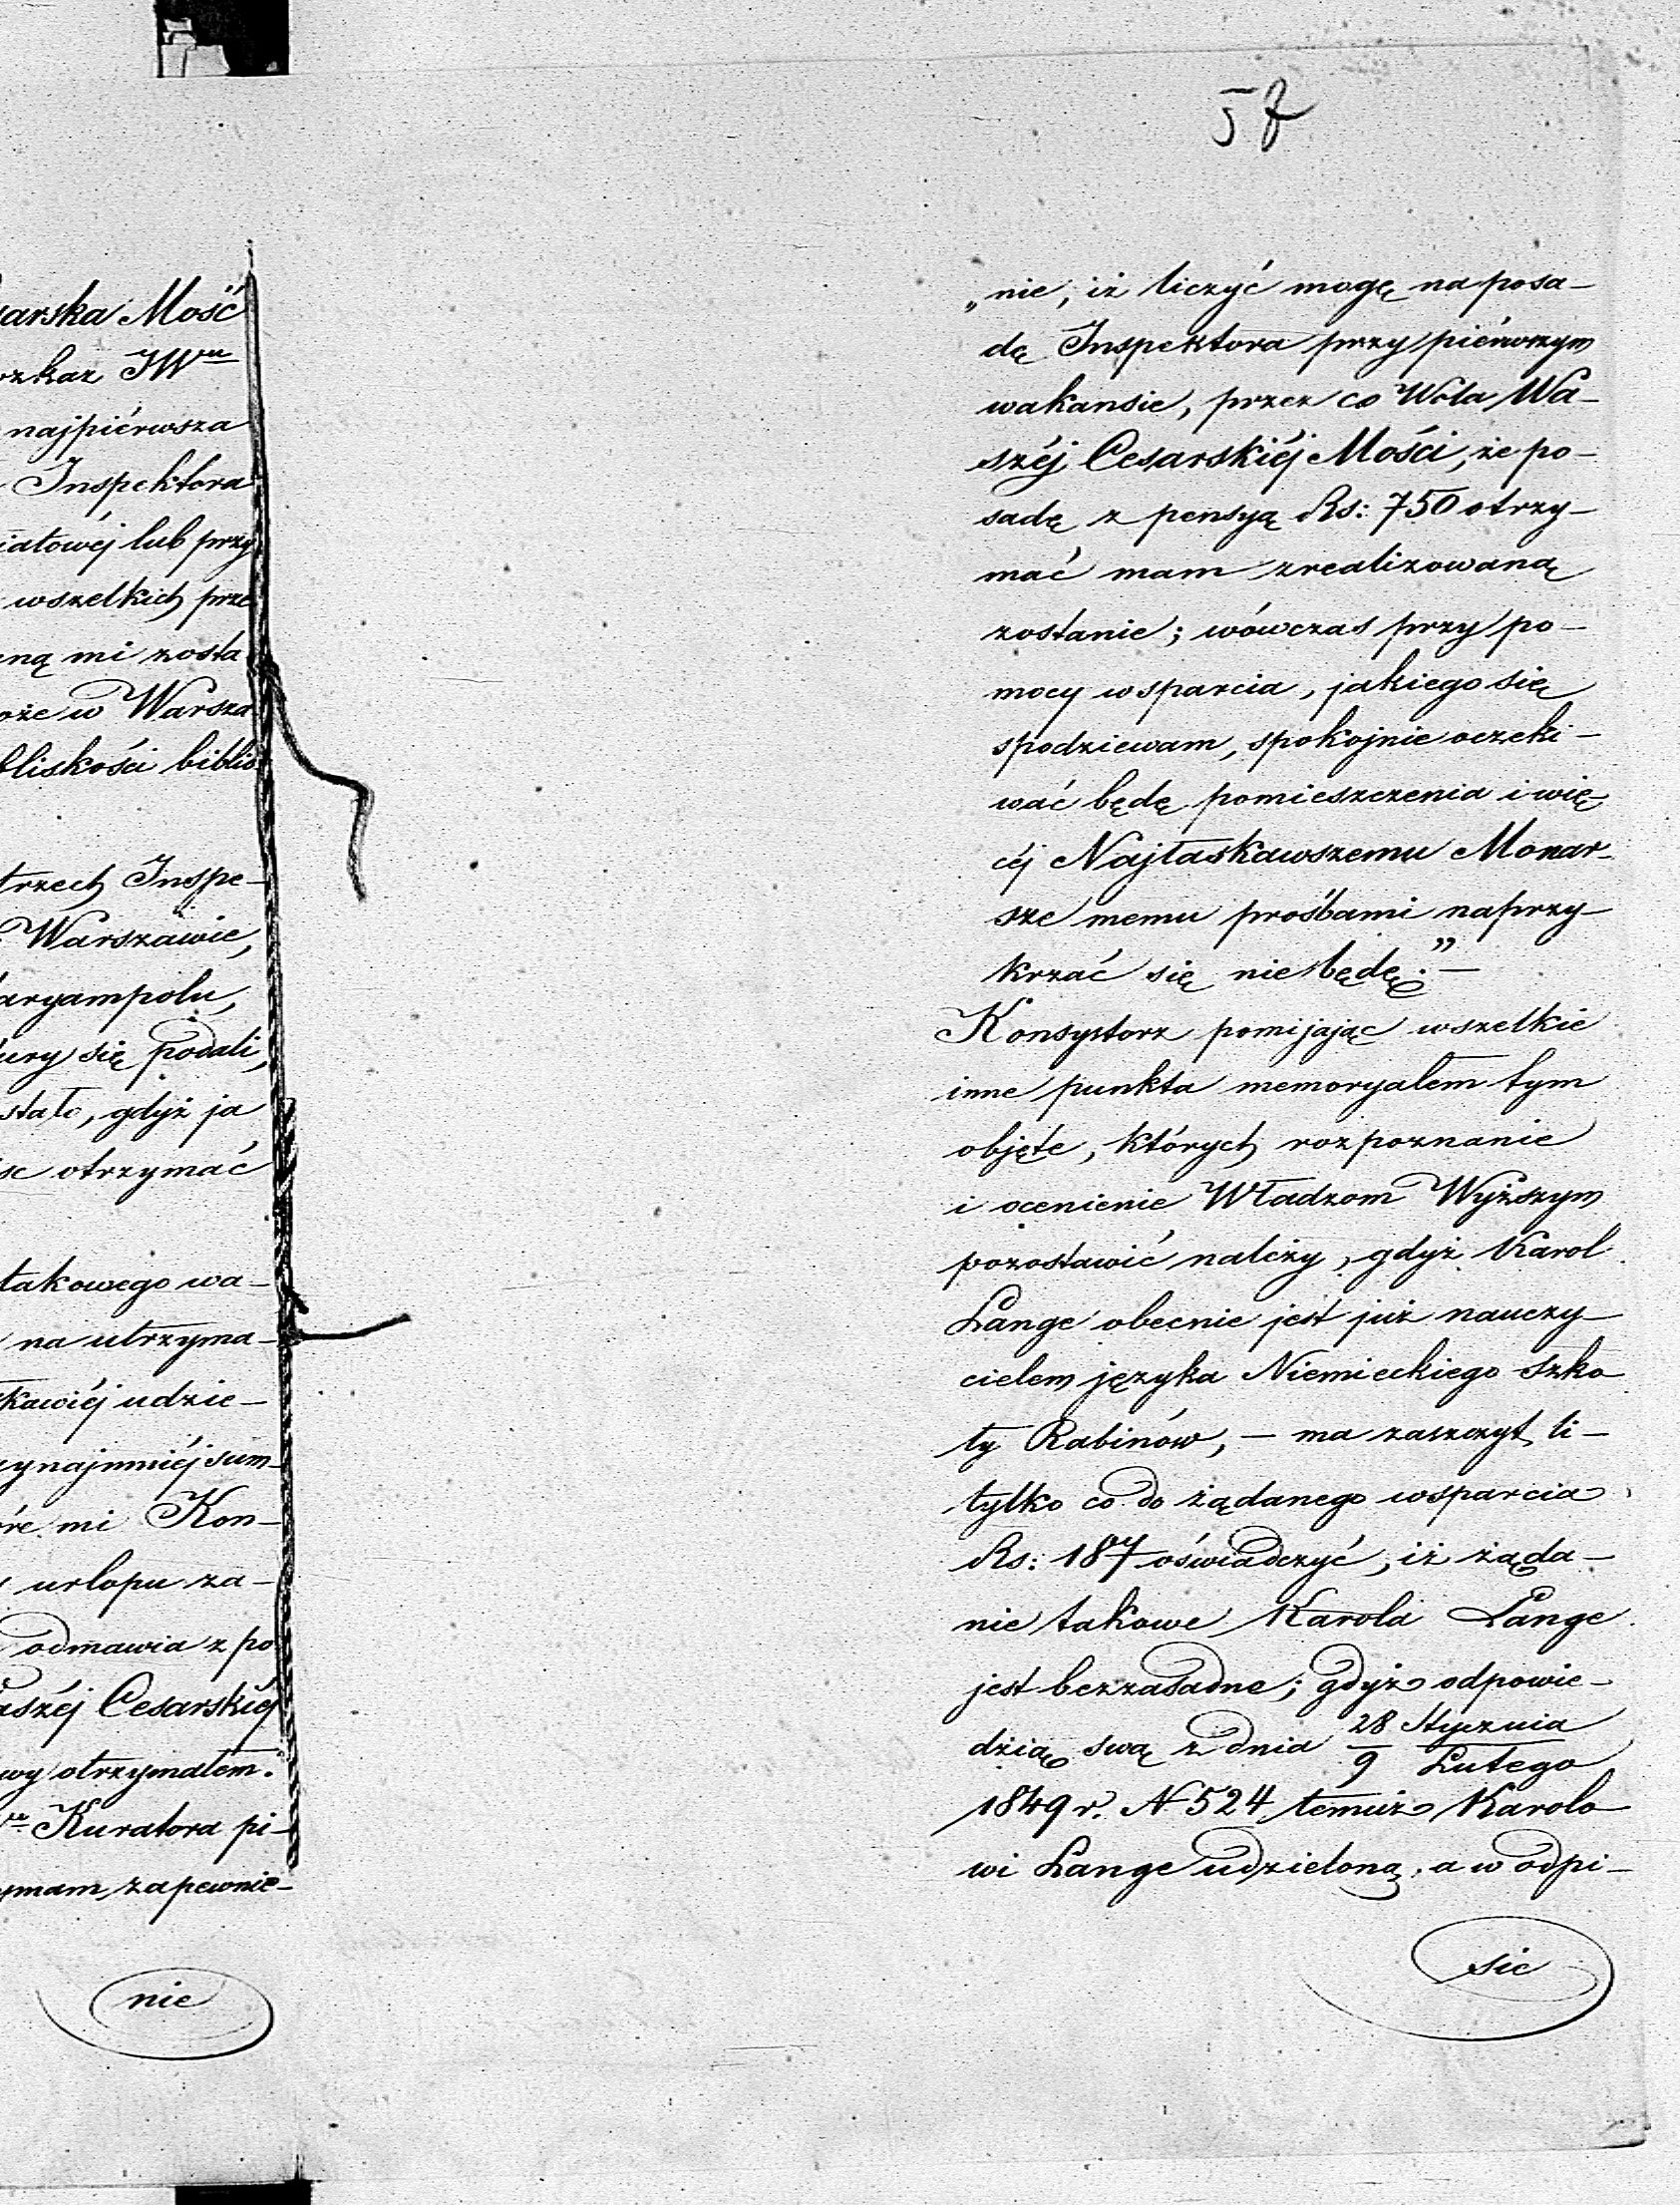 sarska Mość
ozkaz JW^(nu)
najpiérwsza
Inspektora
iatowéj lub przy
wszelkich prze
ną mi zosta
oże w Warsza
bliskości biblio
trzech Inspe-
Warszawie,
aryampolu,
się podali,
stało, gdyż ja
otrzymać
takowego wa-
na utrzyma-
kawiéj udzie-
ynajmniéj sum-
óre mi Kon-
urlopu za-
odmawia z po
aszéj Cesarskiéj
wy otrzymałem.
Kuratora pi-
ymam, zapewnie-
nie
57
„nie, iż liczyć mogę na posa-
dę Inspektora przy piérwszym
wakansie, przez co Wola Wa-
széj Cesarskiéj Mości, że po-
sadę z pensyą Rs: 750 otrzy-
mać mam zrealizowaną
zostanie; wówczas przy po-
mocy wsparcia, jakiego się
spodziewam, spokojnie oczeki-
wać będę pomieszczenia i wię-
céj Najłaskawszemu Monar-
sze memu prośbami naprzy-
krzać się nie będę."—
Konsystorz pomijając wszelkie
inne punkta memoryałem tym
objęte, których rozpoznanie
i ocenienie Władzom Wyższym
pozostawić należy, gdyż Karol
Lange obecnie jest już nauczy-
cielem języka Niemieckiego Szko-
ły Rabinów, — ma zaszczyt li-
tylko co do żądanego wsparcia
Rs: 187 oświadczyć, iż żąda-
nie takowe Karola Lange
jest bezzasadne; gdyż odpowie-
dzią swą z dnia 28 Stycznia / 9 Lutego
1849 r. N 524 temuż Karolo-
wi Lange udzieloną, a w odpi-
sie